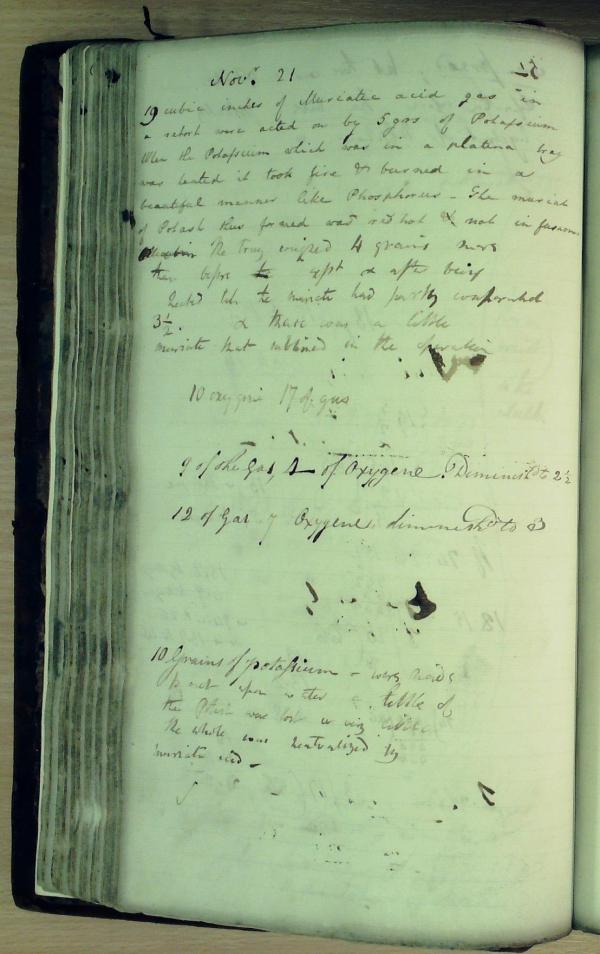 Novr. 21
19 cubic inches of Muriatic acid gas in
a retort were acted on by 5 grs of Potassium
When the Potassium which was in a platina tray
was heated it took fire & burned in a
beautiful manner like Phosphorus - The muriate
of Potash thus formed was red hot & not in fusion
The tray weighed 4 grains more
than before &  after being
heated till the muriate had partly evaporated
3½. & there was a little
muriate that sublimed in the operation
10 oxygene 17 of gas
9 of the Gas, of Oxygene. Diminishd to 2½
12 of Gas 7 Oxygene diminishd to 3
10 Grains of potassium - were made
to act upon water a little of
the Potash was lost
the whole was neutralized by
muriatic acid -